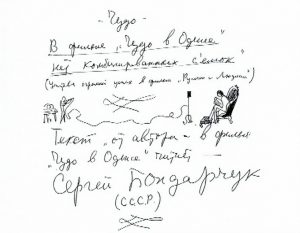 - Чудо -
В фильме „Чудо в Одессе"
нет комбинированных съемок"
(Учтён горький успех в фильме „Руслан и Людмила")
Текст „от автора" - в фильме
„Чудо в Одессе" читает —
Сергей Бондарчук
(СССР)